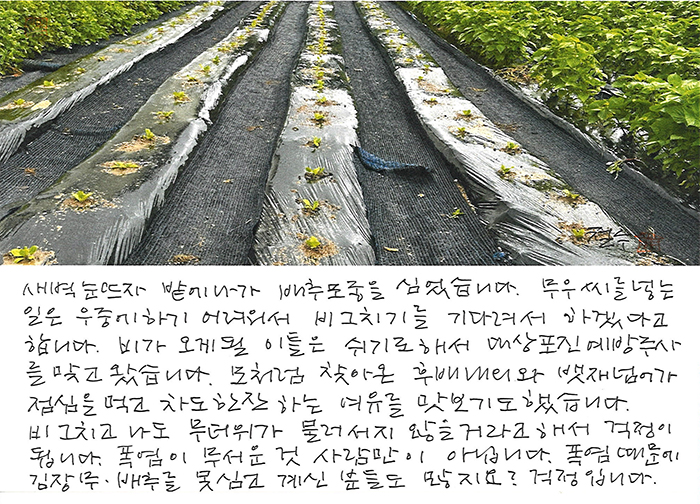 새벽 눈뜨자 밭에나가 배추모종을 심었습니다. 무우씨를넣는
일은 우중에하기 어려워서 비그치기를 기다려서 하겠다고
합니다. 비가 오게될 이틀은 쉬기로해서 대상포진예방주사
를 맞고 왔습니다. 모처럼 찾아온 후배내외와 뱃재넘어가
점심을 먹고 차도한잔 하는 여유를 맛보기도했습니다.
비그치고 나도 무더위가 물러서지 않을거라고해서 걱정이
됩니다. 폭염이 무서운 것 사람만이 아닙니다. 폭염때문에
김장무·배추를 못심고 계신 분들도 많지요? 걱정입니다.